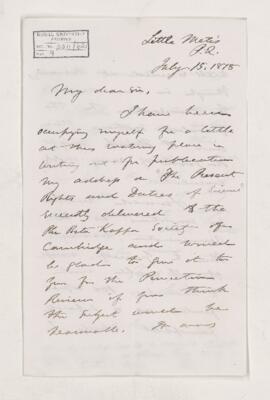 McGILL UNIVERSITY
ARCHIVES
ACC. NO.
REF.
Little Metis
P.Q.
July 15. 1878
My dear sir,
I have been
occupying myself for a little
at this watering place in
writing out for publication
my address on The Present
Rights and Duties of Science
recently delivered to the
Phi Beta Kappa Society of
Cambridge and would
be glad to give it to
you for the Princeton
Review if you think
the subject would be
seasonable.